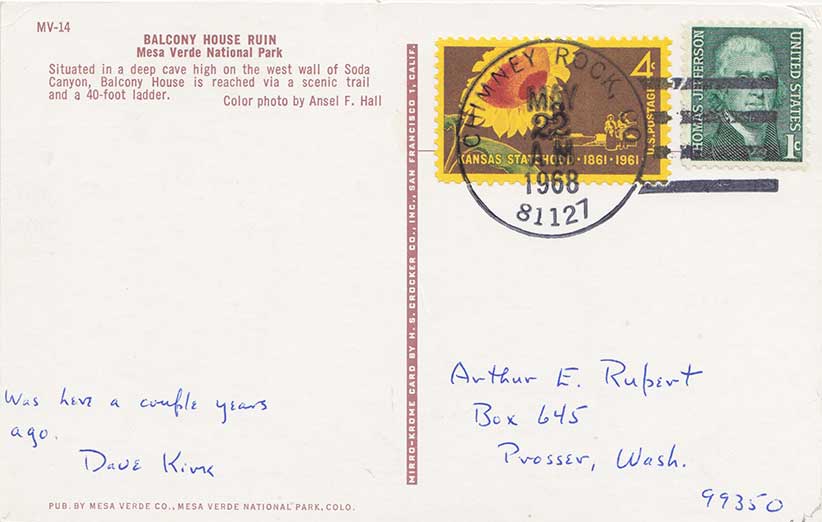 MV-14
BALCONY HOUSE RUIN
Mesa Verde National Park
Situated in a deep cave high on the west wall of Soda
Canyon, Balcony House is reached via a scenic trail
and a 40-foot ladder.
Color photo by Ansel F. Hall
Was here a couple years
ago.
Dave
PUB. BY MESA VERDE CO., MESA VERDE NATIONAL PARK, COLO.
MIRRO-KROME CARD BY H. S. CROCKER CO., INC., SAN FRANCISCO 1, CALIF.
4c
U.S. POSTAGE
KANSAS STATEHOOD · 1861-1961
CHIMNEY ROCK, CO
MAY
22
AM
1968
81127
THOMAS JEFFERSON
UNITED STATES
1c
Arthur E. Rupert
Box 645
Prosser, Wash.
99350